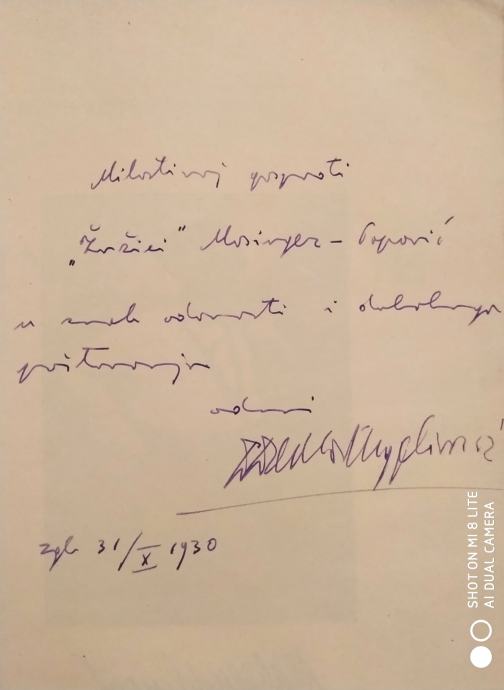 Milostivoj gospođi
„Žužici" Mosinger-Popović
u znak odanosti i dubokoga
poštovanja
odani
Zgb 31/X 1930
SHOT ON MI 8 LITE
AI DUAL CAMERA